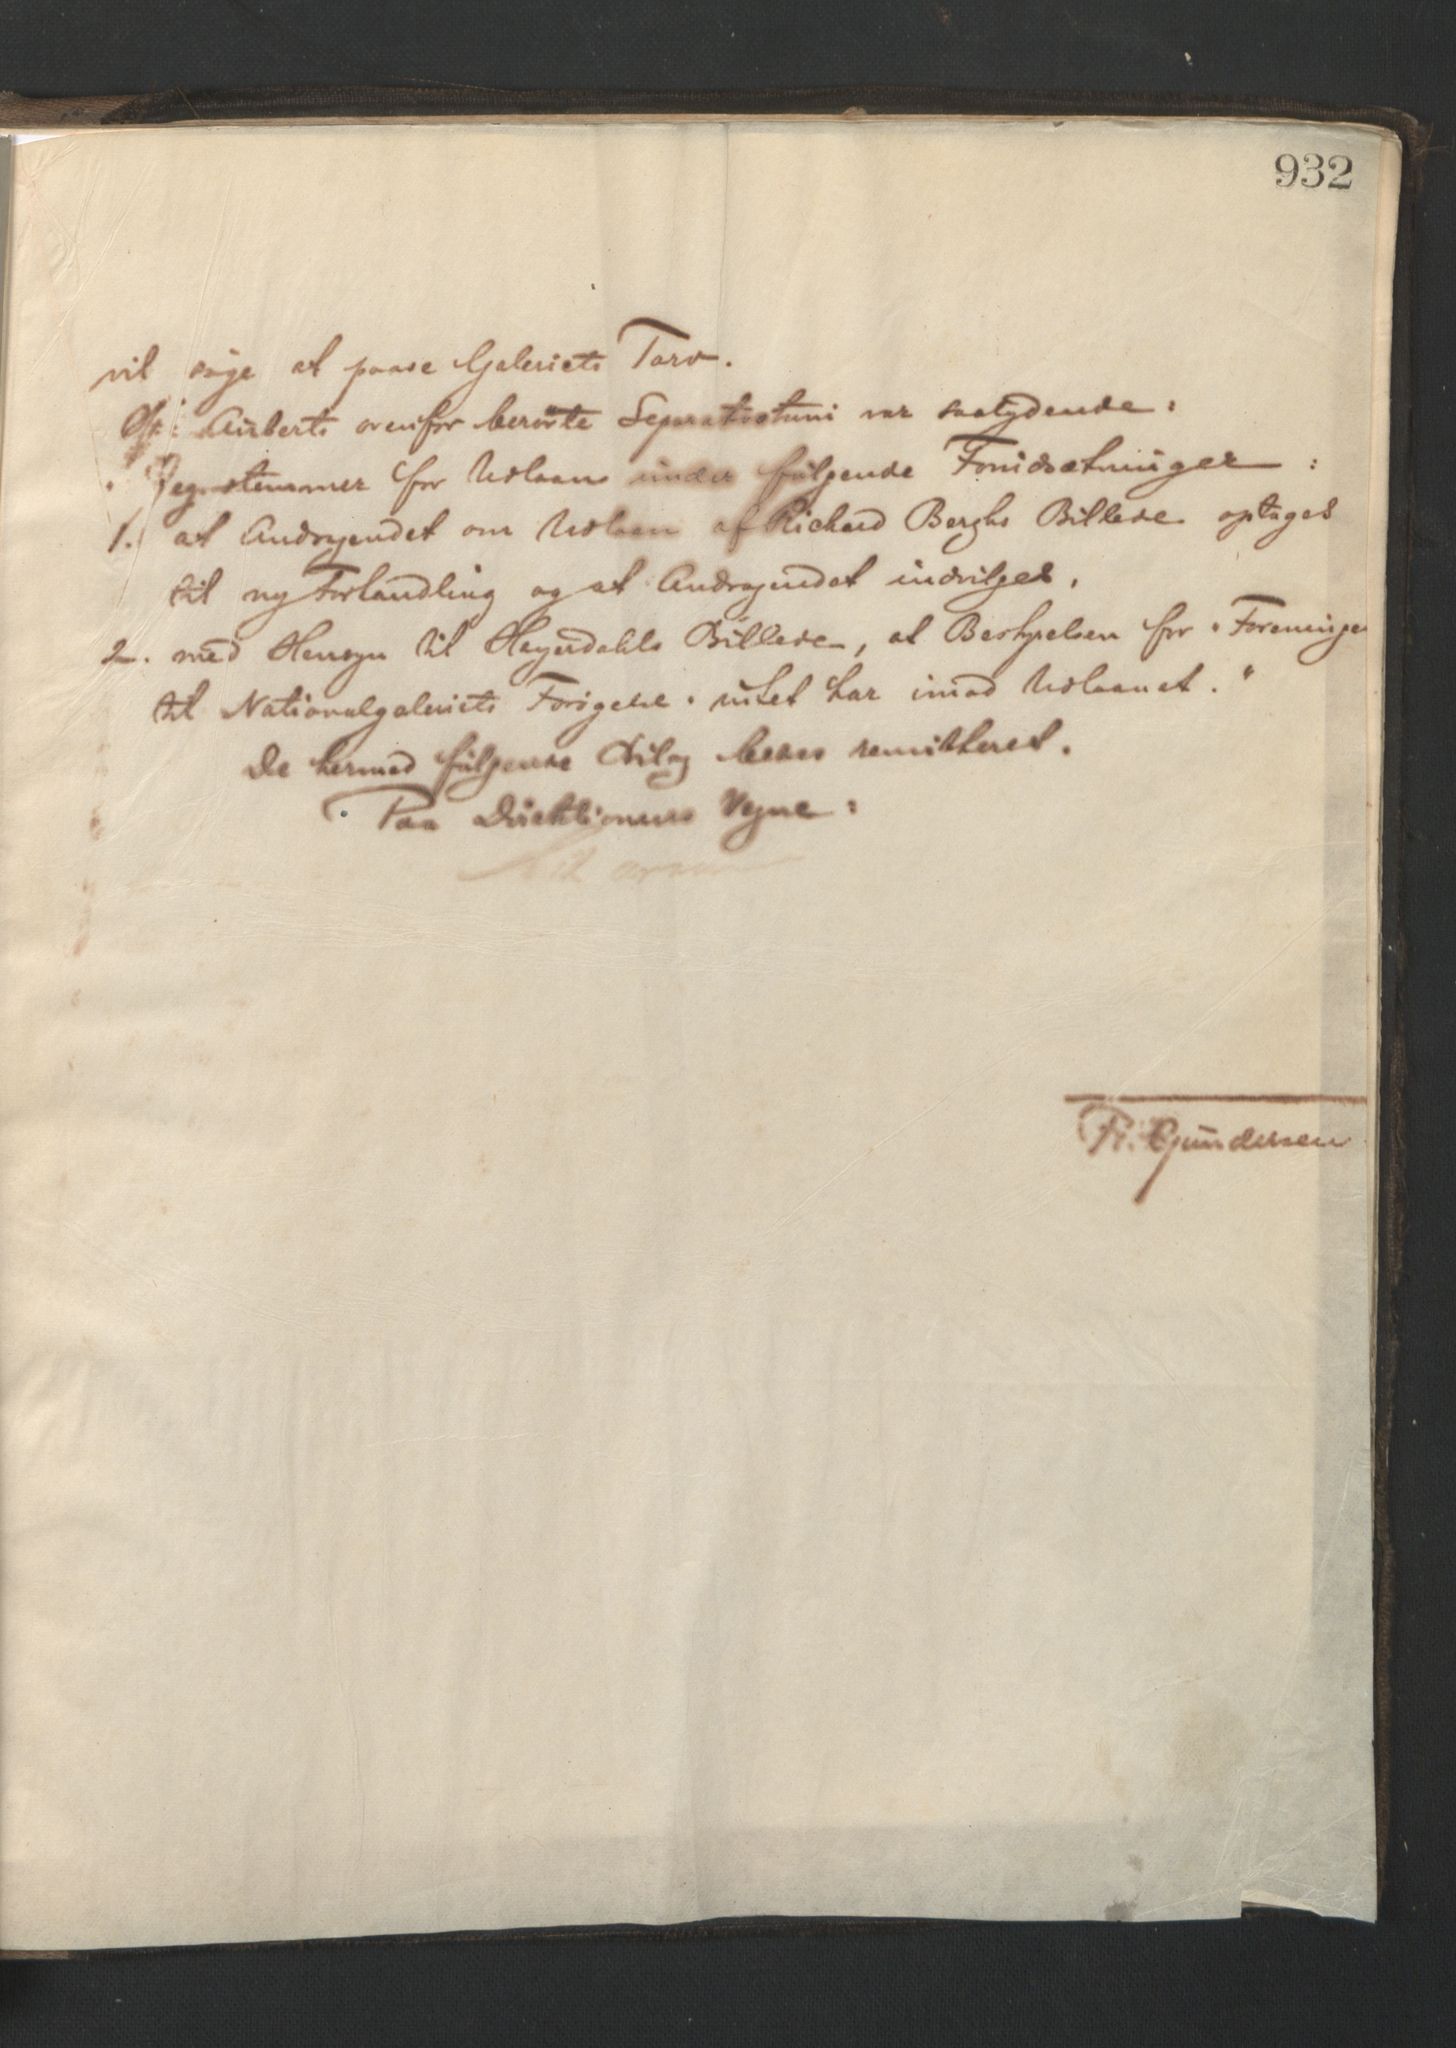 932
vil søge at paase Galeriets Tarv.
Hr: Auberts ovenfor berørte Separatvotum var saalydende:
"Jeg stemmer for Udlaan under følgende Forudsætninger:
1. at Andragendet om Udlaan af Richard Berghs Billede optages
til ny Forhandling og at Andragendet indvilges.
2. med Hensyn til Heyerdahls Billede, at Bestyrelsen for "Foreningen
til Nationalgaleriets Forøgelse" intet har imod Udlaanet."
De hermed følgende Bilag bedes remitteret.
Paa Direktionens Vegne:
Fr. Gundersen